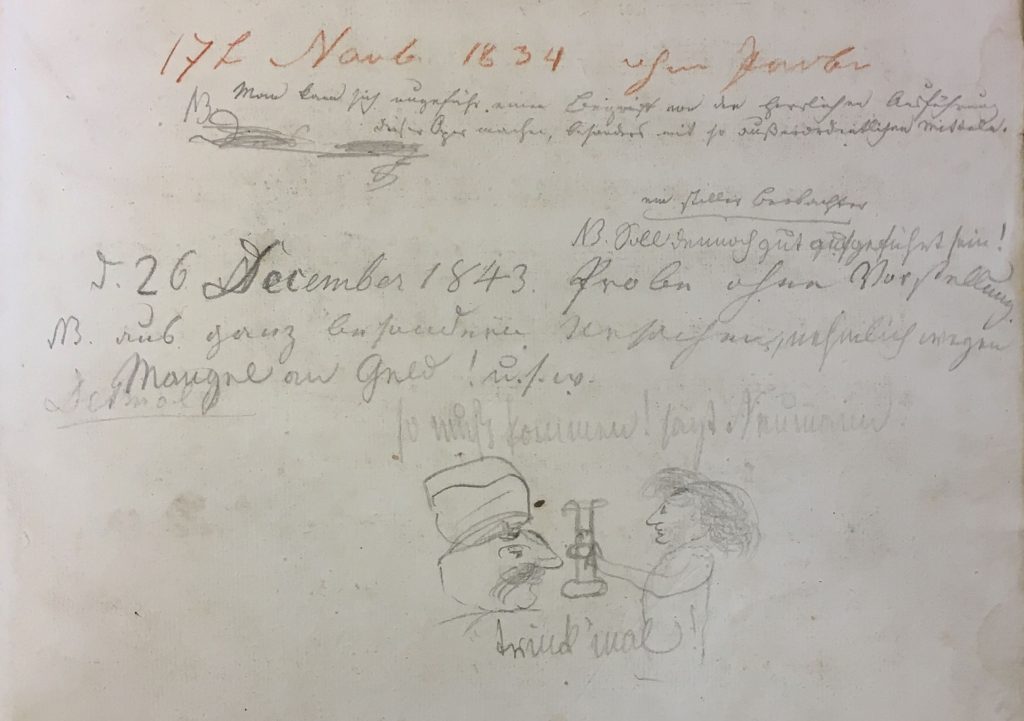 17t Novb 1834 ohne Probe
NB. Man kann sich ungefähr einen Begriff von der herrlichen Ausführung
dieser Oper machen, besonders mit so außerordentlichen Mitteln.
ein stiller Beobachter
NB. Soll dennoch gut aufgeführt sein!
d. 26 December 1843. Probe ohne Vorstellung
NB. aus ganz besondern Ursachen, nehmlich wegen
Mangel an Geld! u.s.w.
so muß's kommen! sagt Neumann
trink' mal!